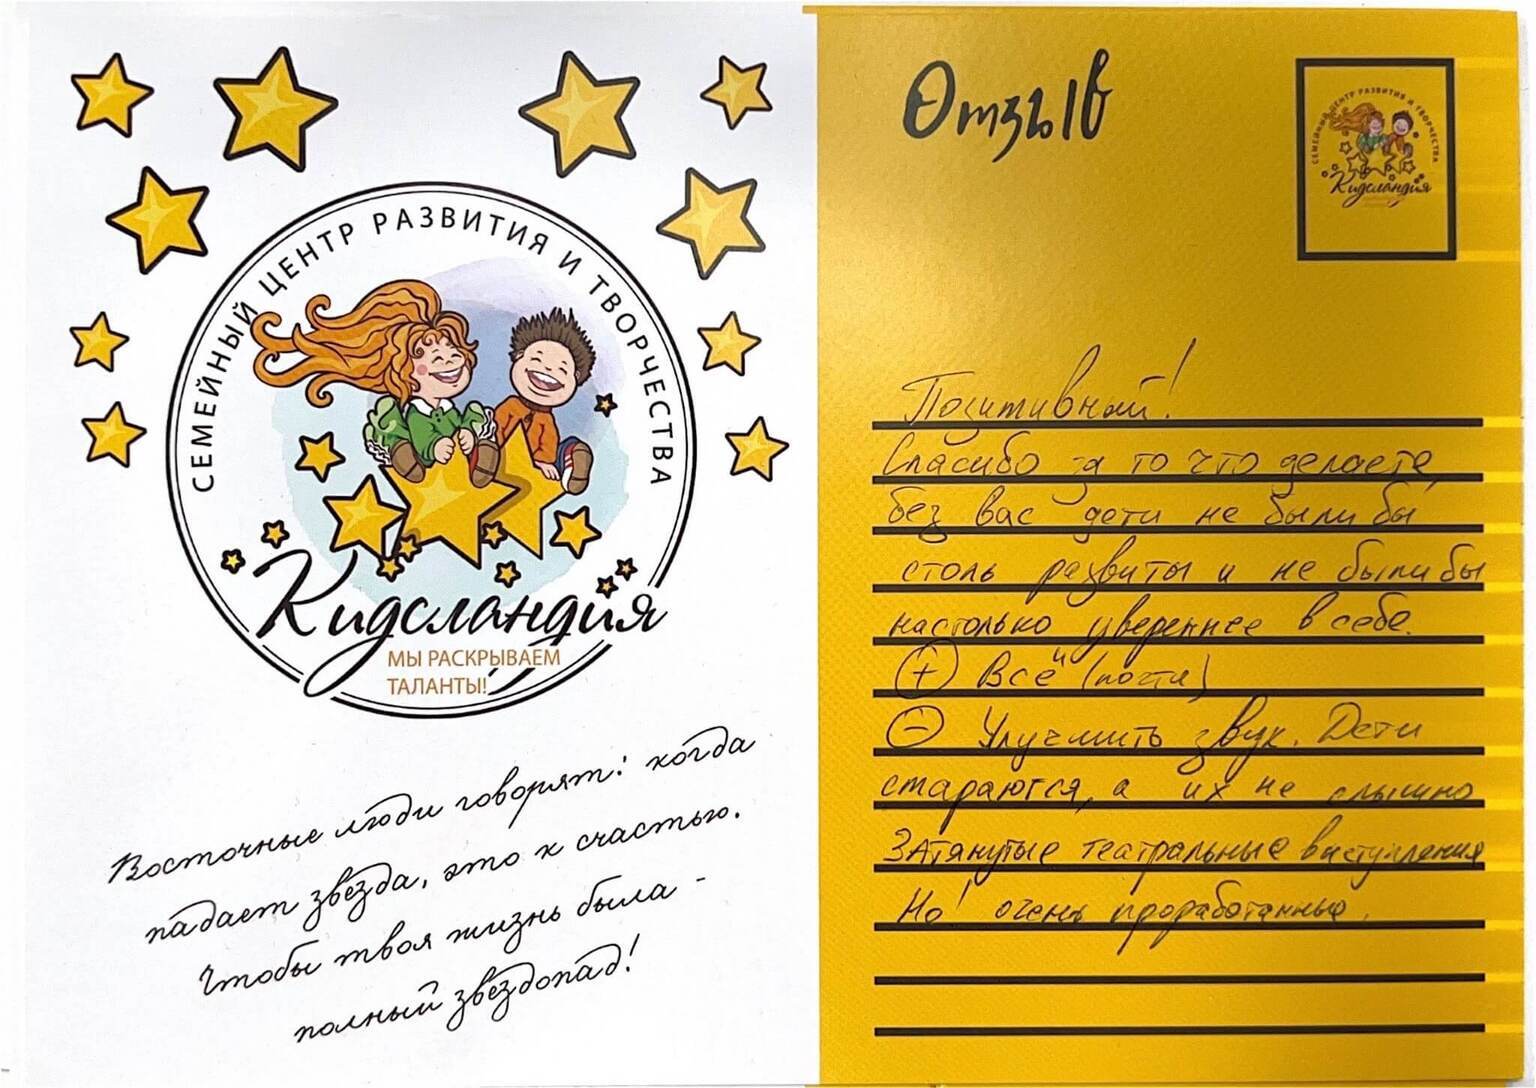 СЕМЕЙНЫЙ ЦЕНТР РАЗВИТИЯ И ТВОРЧЕСТВА
Кидсландия
МЫ РАСКРЫВАЕМ
ТАЛАНТЫ!
Восточные люди говорят: когда
падает звезда, это к счастью.
Чтобы твоя жизнь была -
полный звездопад!
Отзыв
СЕМЕЙНЫЙ ЦЕНТР РАЗВИТИЯ И ТВОРЧЕСТВА
Кидсландия
Позитивный!
Спасибо за то что делаете,
без вас дети не были бы
столь развиты и не были бы
настолько увереннее в себе.
+ Всё (почти)
- Улучшить звук. Дети
стараются, а их не слышно
Затянутые театральные выступления
Но! очень проработанные.